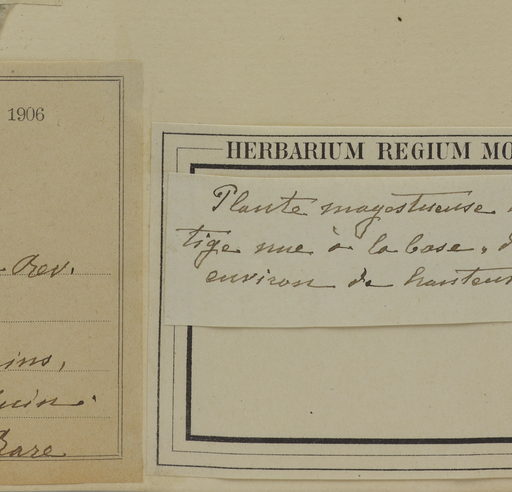 1906
Rev.
Rare
HERBARIUM REGIUM MO
Plante magestueuse
tige nue à la base, d
environ de hauteur